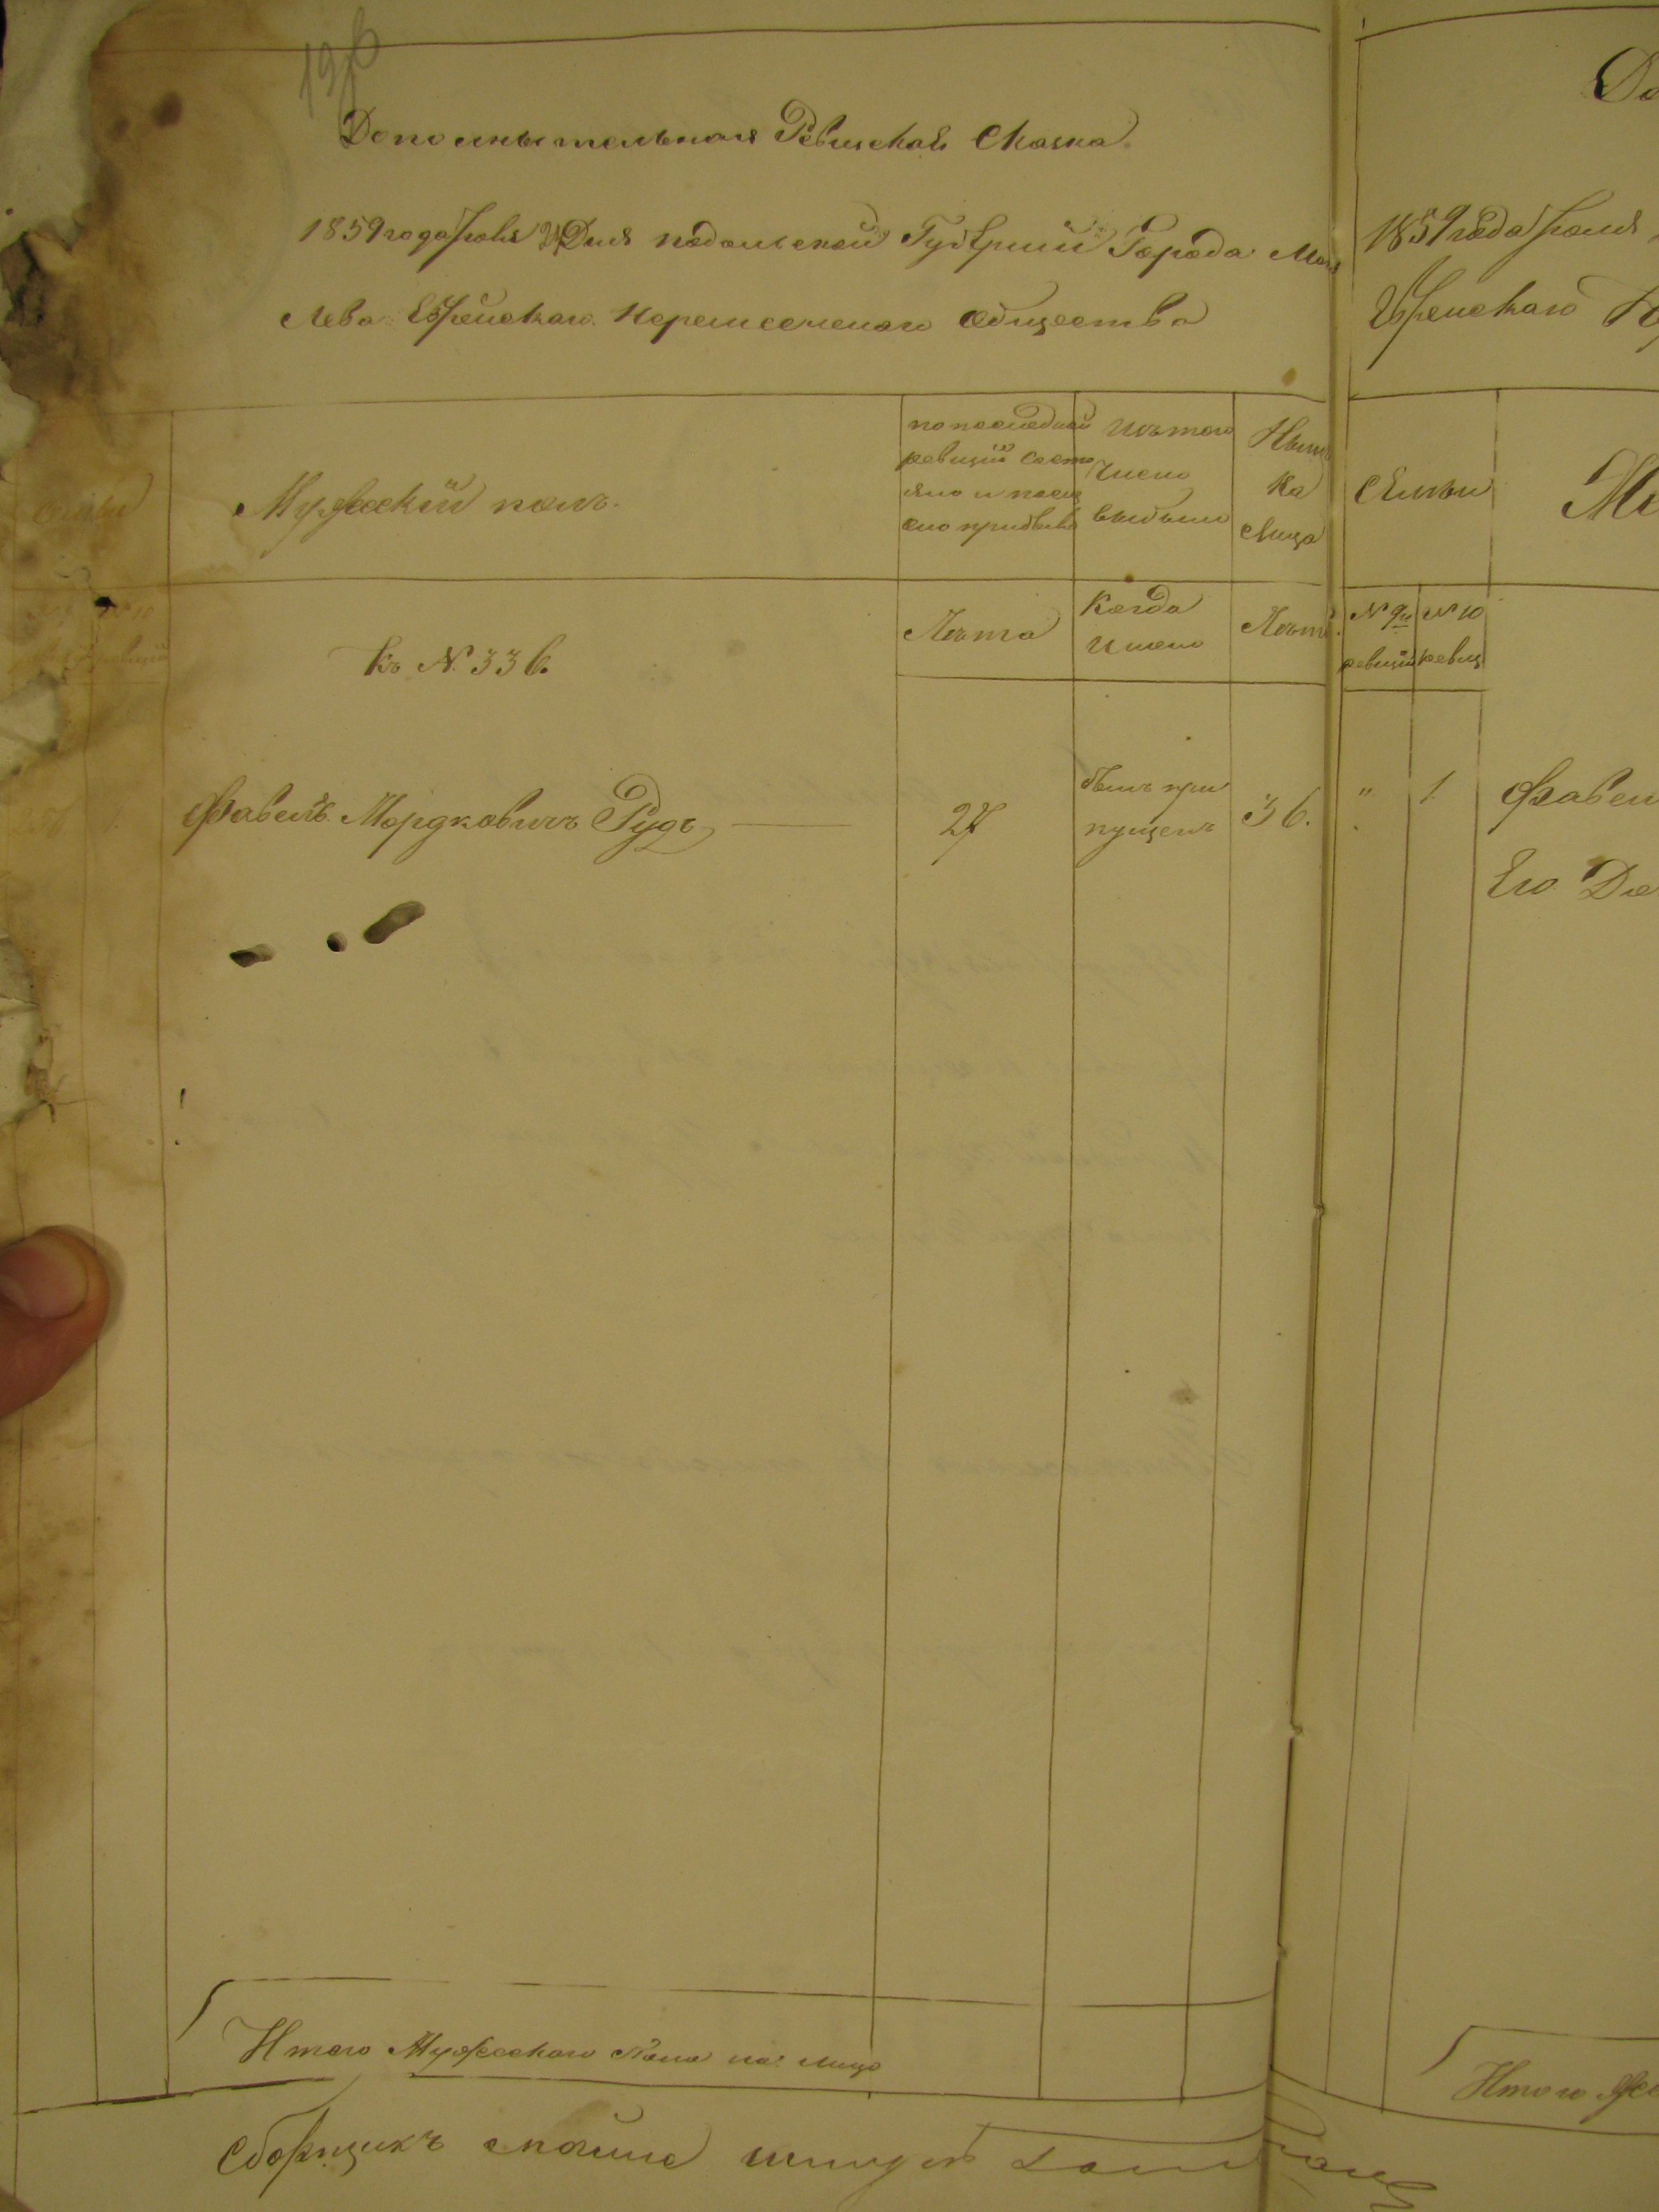 196
Дополнытельная Ревиская Сказка
1859 года Июля Дня подольской Губерниi Города Моги
Лева Еврейскаго Общества
Семьи
Мужескiй полъ.
по последней
ревицiй состо
яло и после
оно прибыло
Изъ того
Число
выбыло
Ныне
На
Лицо
№ 9 № 10
ревицiй
къ № 336.
Лѣта
Когда
Имено
Лѣта
1. Фавель Мордковичъ Рудь
27
былъ при
пущенъ
36.
Итого Мужескаго Пола на лицо
Сборщикъ
До
1859 года Июля
Еврейскаго
Семьи
Му
№ 9й № 10
ревицiй ревиц
" 1. Фавел
Его До
Итого Же